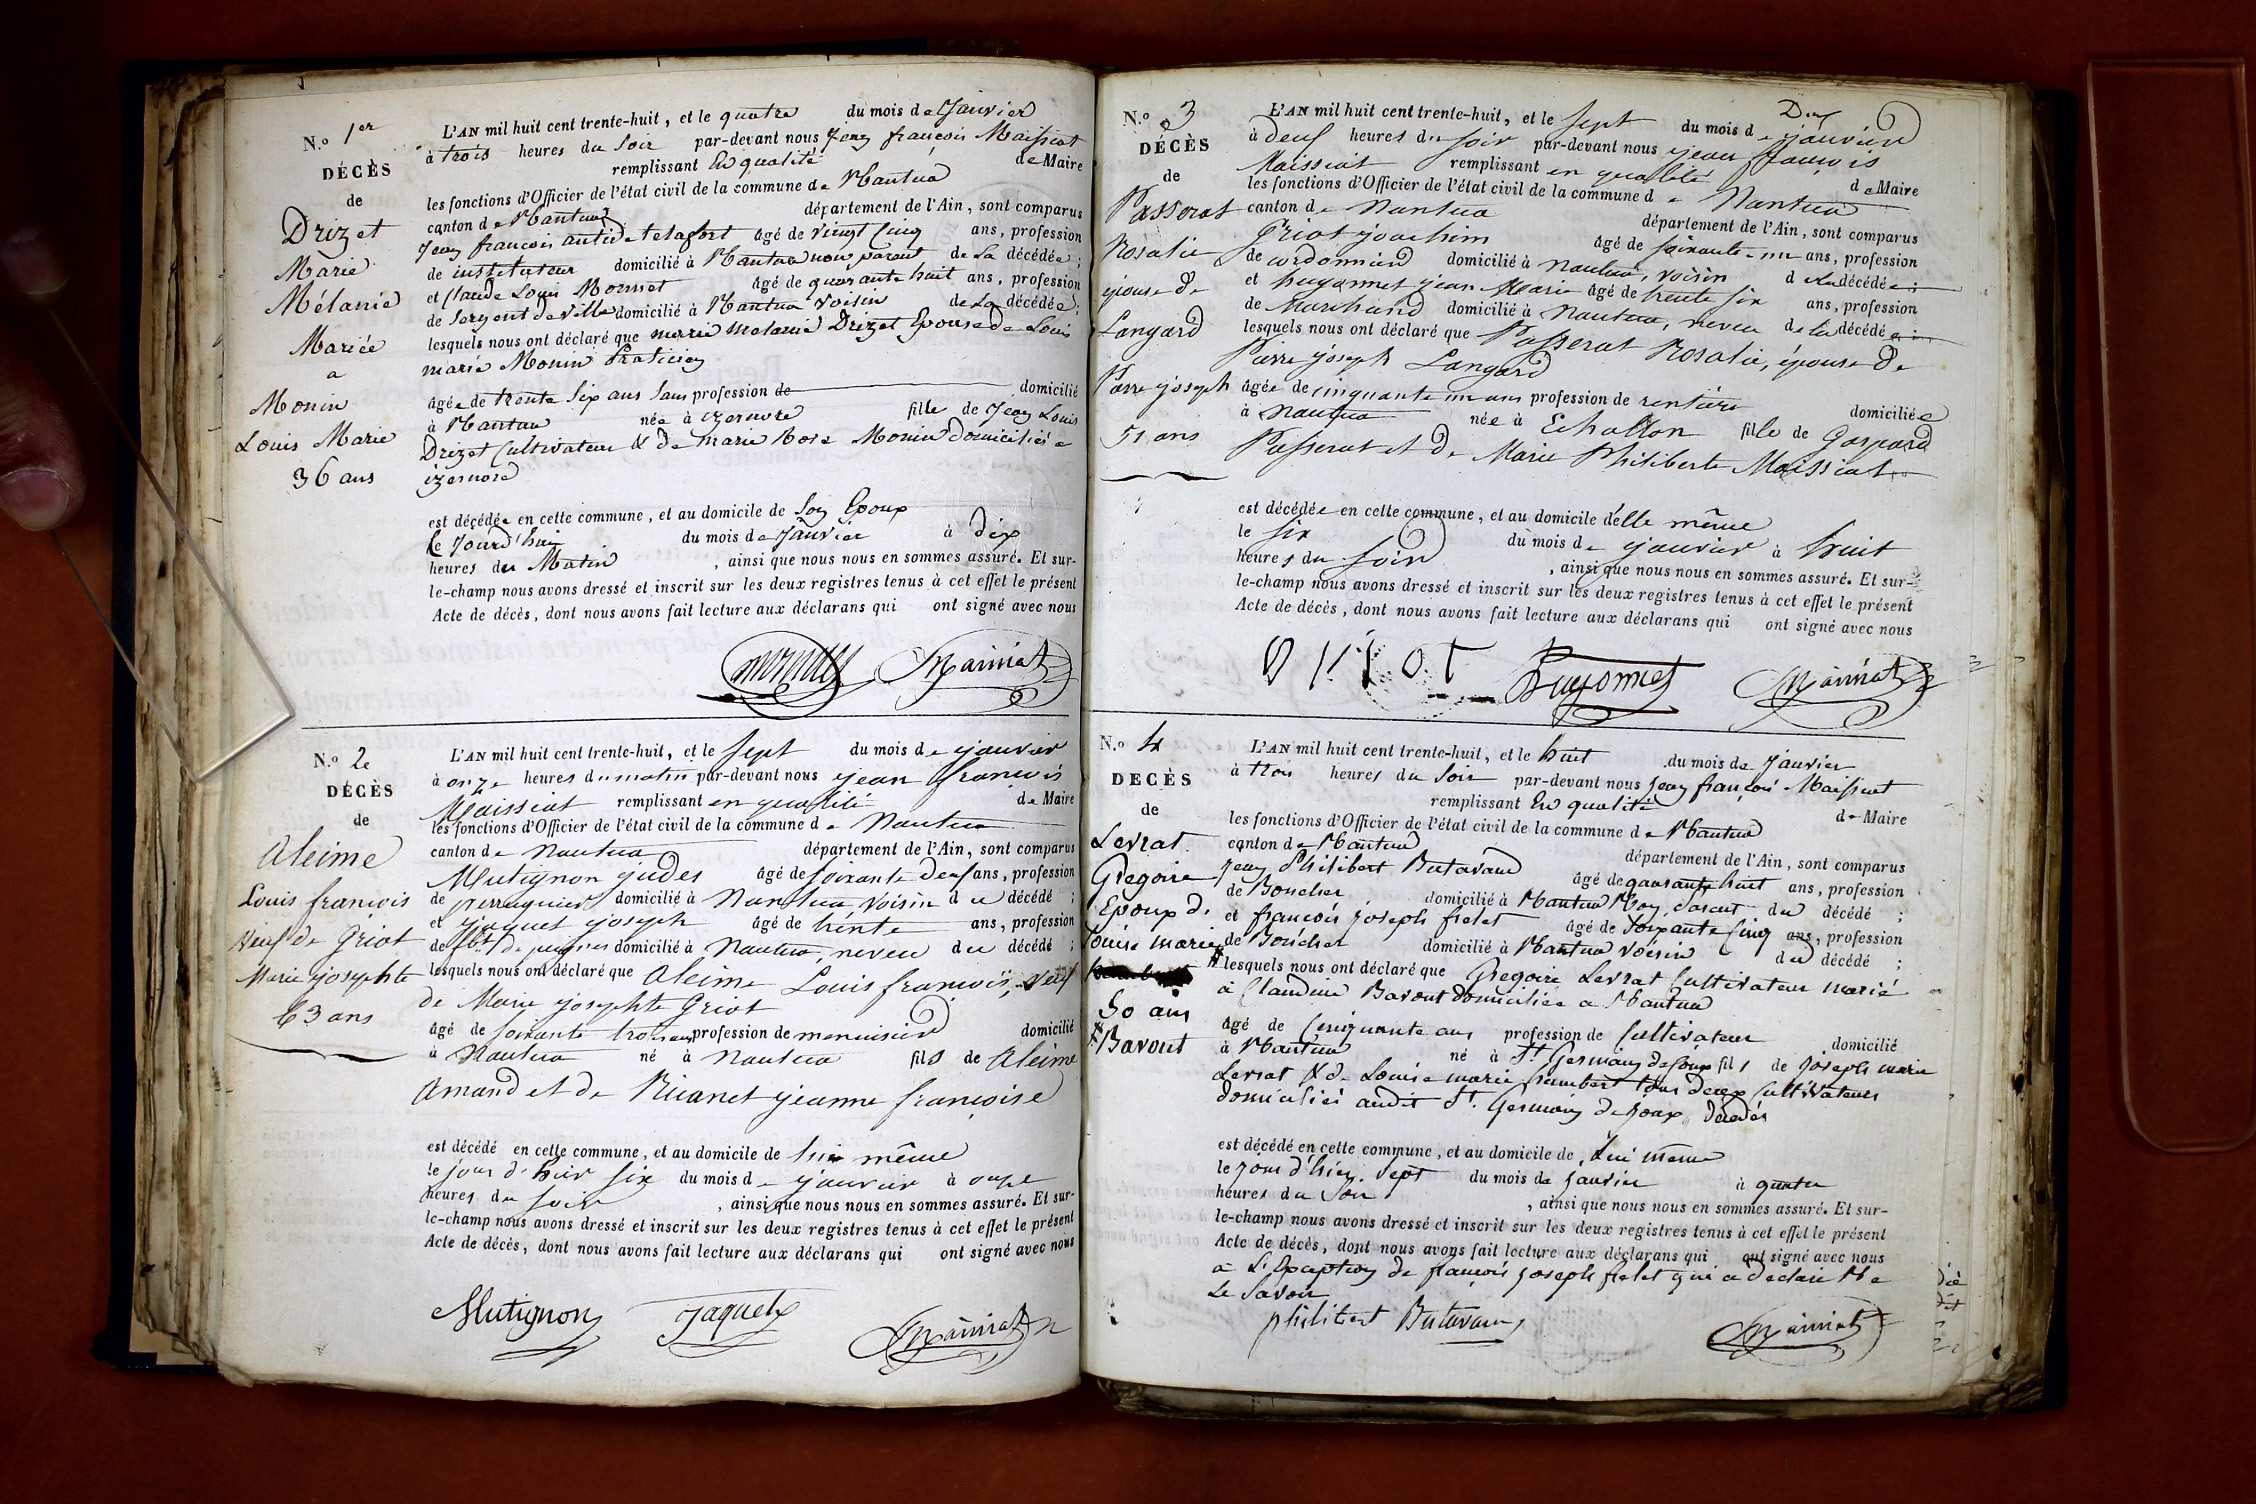 N.º 1er
DÉCÈS
de
Drizet
Marie
Mélanie
Mariée
a
Monin
Louis Marie
36 ans
L'AN mil huit cent trente-huit, et le quatre du mois de Janvier
à trois heures du Soir par-devant nous Jean françois Maissiat
remplissant En qualité de Maire
les fonctions d'Officier de l'état civil de la commune de Nantua
canton de Nantua département de l'Ain, sont comparus
Jean françois antide âgé de vingt Cinq ans, profession
de instituteur domicilié à Nantua non parent de La décédée ;
et Claude Louis Mournet âgé de quarante huit ans, profession
de Sergent de ville domicilié à Nantua Voisin de La décédée ;
lesquels nous ont déclaré que marie melanie Drizet Epouse de Louis
marie Monin Praticien
âgée de trente Six ans Sans profession de domicilié
à Nantua née à izernore fille de Jean Louis
Drizet Cultivateur & de marie Rose Monin domiciliés a
izernore
est décédée en cette commune, et au domicile de Son Epoux
Le Jourd'hui du mois de Janvier à dix
heures du Matin , ainsi que nous nous en sommes assuré. Et sur-
le-champ nous avons dressé et inscrit sur les deux registres tenus à cet effet le présent
Acte de décès, dont nous avons fait lecture aux déclarans qui ont signé avec nous
Maissiat
N.º 2
DÉCÈS
de
Aleime
Louis françois
Veuf de Griot
Marie josephte
63 ans
L'AN mil huit cent trente-huit, et le sept du mois de janvier
à onze heures du matin par-devant nous jean françois
Maissiat remplissant en qualité de Maire
les fonctions d'Officier de l'état civil de la commune de Nantua
canton de Nantua département de l'Ain, sont comparus
Mutignon judes âgé de soixante deux ans, profession
de perruquier domicilié à Nantua voisin du décédé ;
et jaquet joseph âgé de trente ans, profession
de fbt de peignes domicilié à Nantua, neveu du décédé ;
lesquels nous ont déclaré que Aleime Louis françois, veuf
de Marie josephte Griot
âgé de soixante trois ans profession de menuisier domicilié
à Nantua né à Nantua fils de Aleime
Amand et de Ricanet jeanne françoise
est décédé en cette commune, et au domicile de lui même
le jour d'hier six du mois de janvier à onze
heures du soir , ainsi que nous nous en sommes assuré. Et sur-
le-champ nous avons dressé et inscrit sur les deux registres tenus à cet effet le présent
Acte de décès, dont nous avons fait lecture aux déclarans qui ont signé avec nous
Mutignon Jaquet Maissiat
N.º 3
DÉCÈS
de
Passerat
Rosalie
épouse de
Langard
Pierre joseph
51 ans
L'AN mil huit cent trente-huit, et le sept du mois de janvier
à deux heures du soir par-devant nous jean françois
Maissiat remplissant en qualité de Maire
les fonctions d'Officier de l'état civil de la commune de Nantua
canton de Nantua département de l'Ain, sont comparus
Griot joachim âgé de soixante-un ans, profession
de cordonnier domicilié à nantua, voisin de la décédée ;
et hugonnet jean Marie âgé de trente six ans, profession
de Marchand domicilié à Nantua, neveu de la décédée ;
lesquels nous ont déclaré que Passerat Rosalie, épouse de
Pierre joseph Langard
âgée de cinquante un ans profession de rentière domiciliée
à Nantua née à Echallon fille de Gaspard
Passerat et de Marie Philiberte Maissiat
est décédée en cette commune, et au domicile d'elle même
le six du mois de janvier à huit
heures du soir , ainsi que nous nous en sommes assuré. Et sur-
le-champ nous avons dressé et inscrit sur les deux registres tenus à cet effet le présent
Acte de décès, dont nous avons fait lecture aux déclarans qui ont signé avec nous
Griot Hugonnet Maissiat
N.º 4
DÉCÈS
de
Levrat
Gregoire
Epoux de
Louise marie
50 ans
Bavout
L'AN mil huit cent trente-huit, et le huit du mois de Janvier
à trois heures du Soir par-devant nous Jean françois Maissiat
remplissant En qualité de Maire
les fonctions d'Officier de l'état civil de la commune de Nantua
canton de Nantua département de l'Ain, sont comparus
Jean Philibert Butavand âgé de quarante huit ans, profession
de Boucher domicilié à Nantua Non parent du décédé ;
et françois joseph frelet âgé de Soixante Cinq ans, profession
de Boucher domicilié à Nantua Voisin du décédé ;
lesquels nous ont déclaré que Gregoire Levrat Cultivateur marié
à Claudine Bavout domiciliée a Nantua
âgé de Cinquante ans profession de Cultivateur domicilié
à Nantua né à St Germain de Joux fils de joseph marie
Levrat & de Louise marie humbert tous deux Cultivateurs
domiciliés audit St. Germain de Joux, décédés
est décédé en cette commune, et au domicile de Lui même
le jour d'hier Sept du mois de janvier à quatre
heures du Soir , ainsi que nous nous en sommes assuré. Et sur-
le-champ nous avons dressé et inscrit sur les deux registres tenus à cet effet le présent
Acte de décès, dont nous avons fait lecture aux déclarans qui ont signé avec nous
a L'Exception de françois joseph frelet qui a déclaré Ne
Le Savoir
philibert Butavand Maissiat